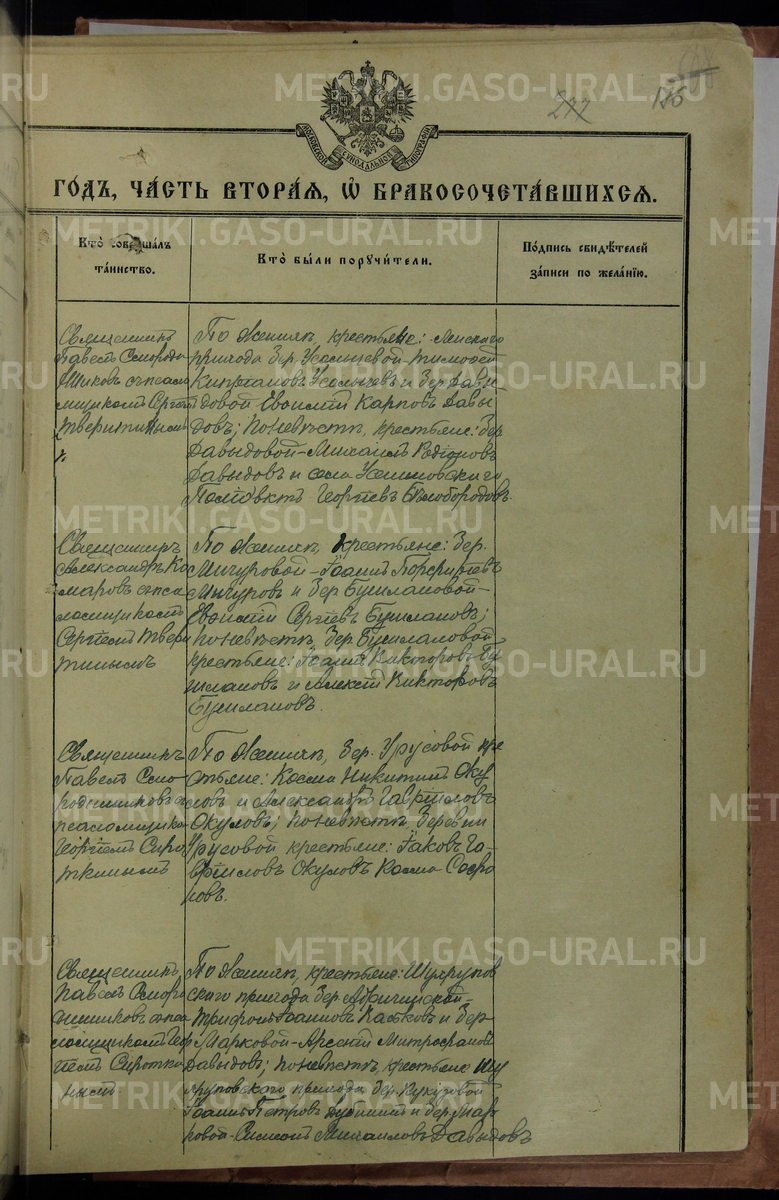 METRIKI.GASO-URAL.RU
277 185
МОСКОВСКОЙ СѴНОДАЛЬНОЙ ТИПОГРАФІИ
ГО́ДЪ, ЧА́СТЬ ВТОРА́Я, Ѡ҆ БРАКОСОЧЕТА́ВШИХСЯ.
Кто̀ соверша́лъ
та́инство.
Кто̀ бы́ли поручи́тели.
По́дпись свидѣ́телей
за́писи по жела́нію.
Священникъ
Павелъ Смороди
нниковъ съ псало
мщикомъ Сергіем
Тверитинымъ
По женихѣ, крестьяне:
прихода дер. Усольцевой Тимофей
Кипріановъ Усольцевъ и дер. Давы
довой Евфимій Карповъ Давы
довъ; по невѣстѣ, крестьяне: дер.
Давыдовой Михаилъ Родіоновъ
Давыдовъ и села
Георгіевъ Бѣлобородовъ
Священникъ
Александръ Ко
маровъ съ пса
ломщикомъ
Сергіемъ Твери
тинымъ
По женихѣ, крестьяне: дер.
Мичуровой Іоаннъ Порфирьевъ
Мичуровъ и дер. Бушлановой
Евфимій Сергіевъ Бушлановъ;
по невѣстѣ, дер. Бушлановой
крестьяне: Іоаннъ Никаноровъ Бу
шлановъ и Алексій Викторовъ
Бушлановъ.
Священникъ
Павелъ Смо
родинниковъ съ
псаломщико
Георгіемъ Сиро
ткинымъ
По женихѣ, дер. Урусовой кре
стьяне: Косма Никитинъ Оку
ловъ и Александръ Гавріиловъ
Окуловъ; по невѣстѣ, деревни
Урусовой крестьяне: Іаковъ Га-
вріиловъ Окуловъ Косма Софро
новъ.
Священникъ
Павелъ Смород
инниковъ съ пса
ломщикомъ Геор
гіемъ Сироткин
нымъ
По женихѣ, крестьяне: Шухрупов
скаго прихода дер.
Трифонъ Іоанновъ и дер
Марковой Арсеній Митрофанов
Давыдовъ; по невѣстѣ, крестьяне Шу
хруповскаго прихода, дер.
Іоаннъ Петровъ и дер. Мар
ковой Симеонъ Михаиловъ Давыдовъ